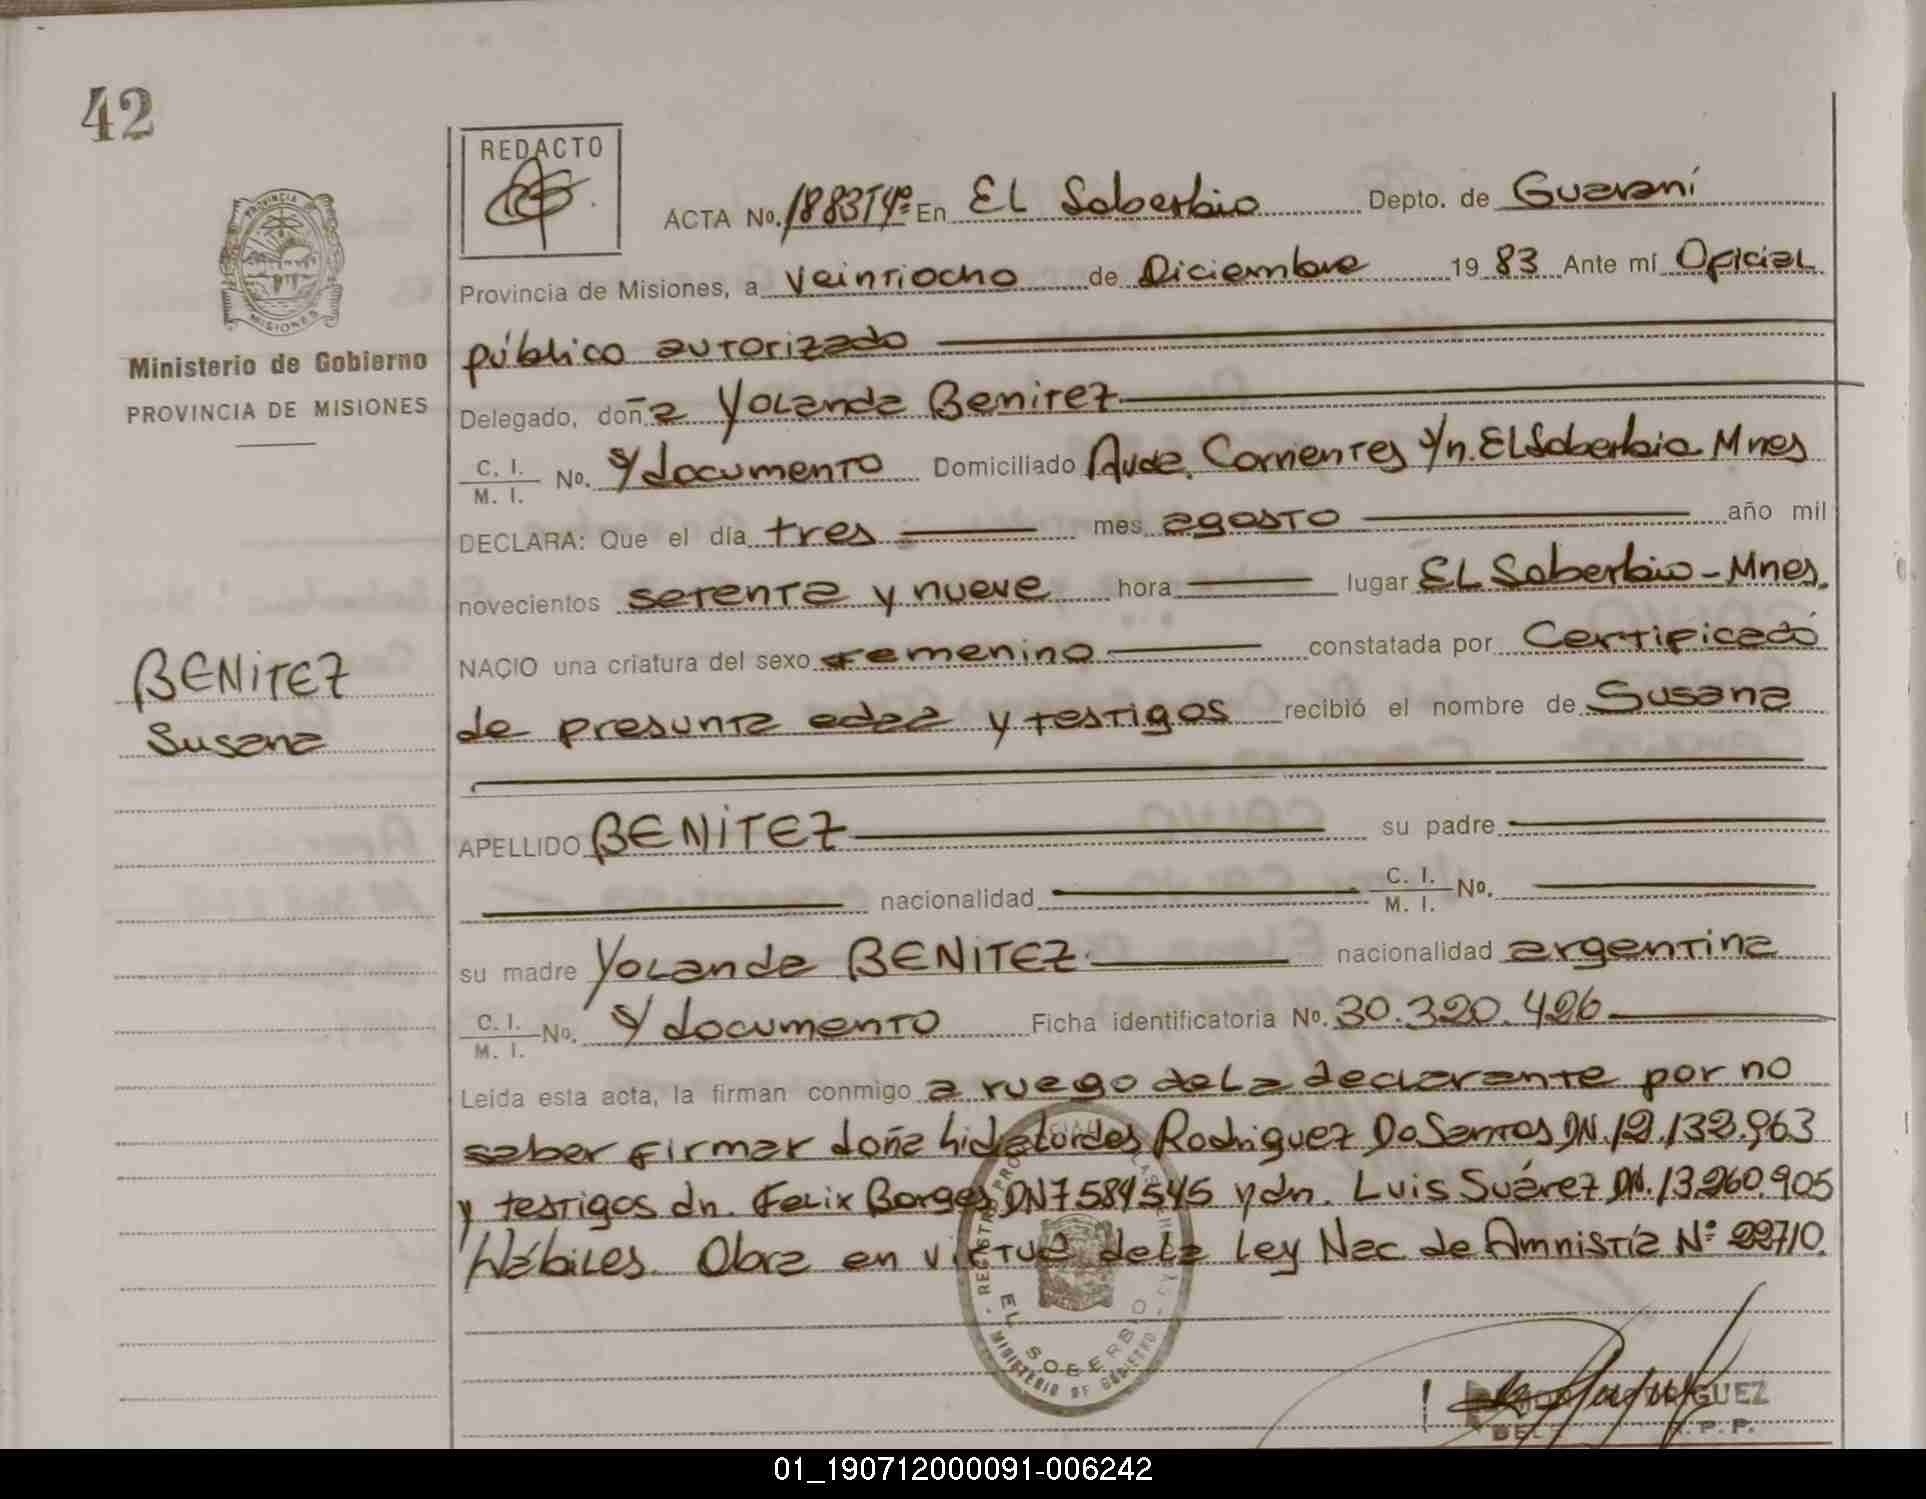 42
REDACTO
ACTA No. 1883T4º En EL Soberbio Depto. de Guaraní
PROVINCIA
MISIONES
Provincia de Misiones, a veintiocho de Diciembre 19 83 Ante mí Oficial
público autorizado
Ministerio de Gobierno
PROVINCIA DE MISIONES
Delegado, doña Yolanda Benitez
C. I.
M. I. No. s/documento Domiciliado Avda. Corrientes s/n. EL Soberbio Mnes
DECLARA: Que el día tres mes agosto año mil
novecientos setenta y nueve hora lugar EL Soberbio - Mnes.
NACIO una criatura del sexo femenino constatada por Certificado
de presunta edad y testigos recibió el nombre de Susana
BENITEZ
Susana
APELLIDO BENITEZ su padre
nacionalidad C. I.
M. I. No.
su madre Yolanda BENITEZ nacionalidad argentina
C. I.
M. I. No. s/documento Ficha identificatoria No. 30.320.426
Leída esta acta, la firman conmigo a ruego de la declarante por no
saber firmar doña Lurdes Rodriguez Do Santos DN. 12.132.963
y testigos dn. Felix Borges DN 7584545 y dn. Luis Suárez DN. 13.260.905
Hábiles. Obra en virtud de la Ley Nac de Amnistía Nº 22710.
EL SOBERBIO
MINISTERIO DE GOBIERNO
GUEZ
DEL P.P.
01_190712000091-006242